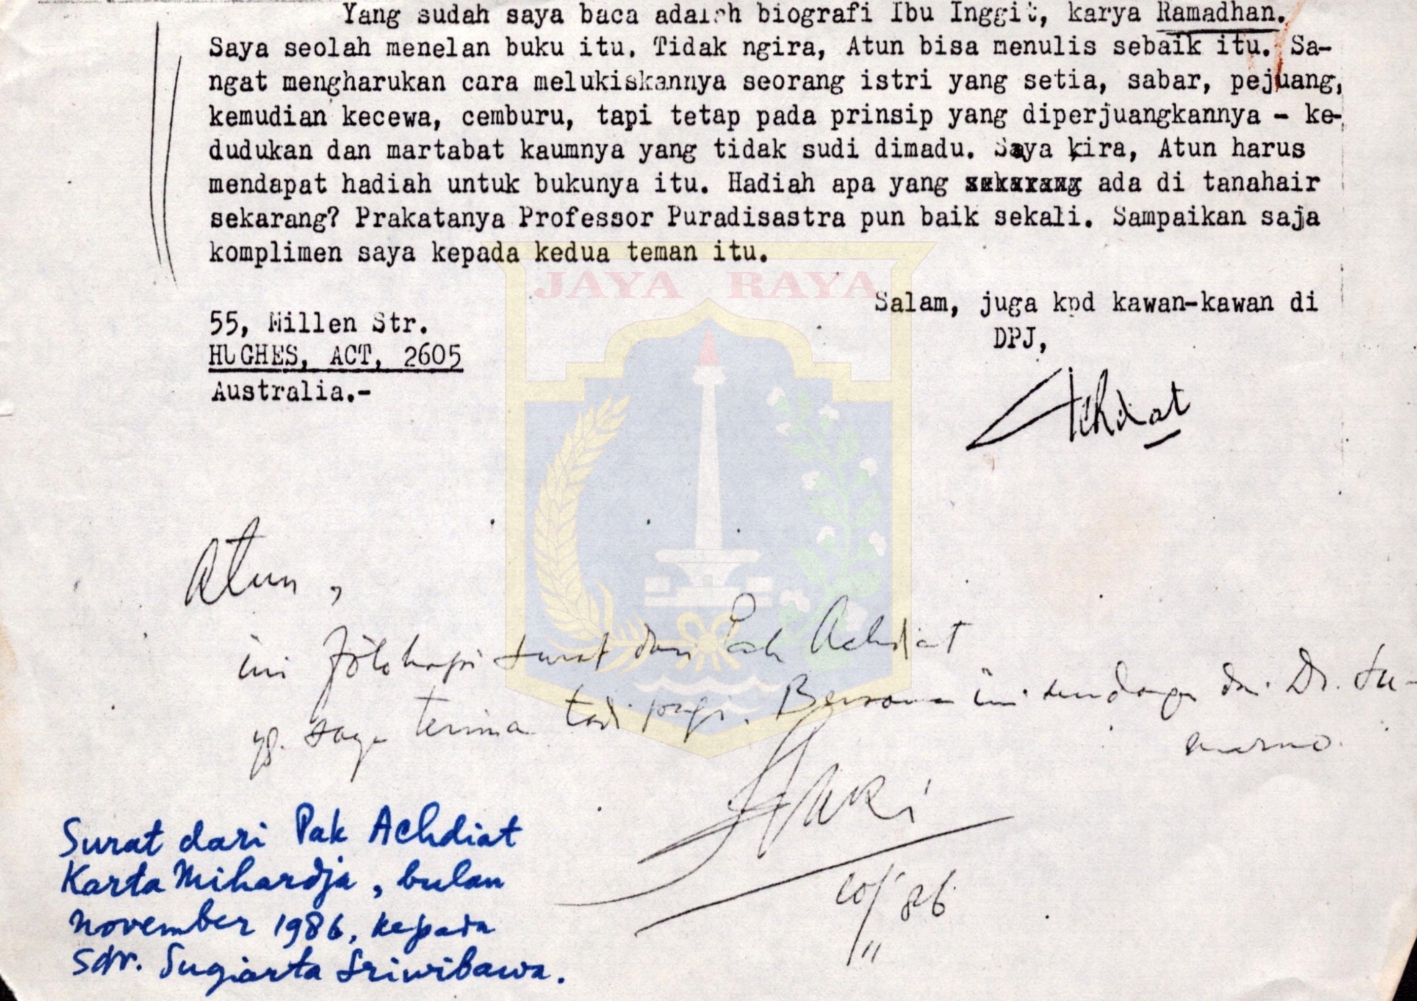 Yang sudah saya baca adalah biografi Ibu Inggit, karya Ramadhan.
Saya seolah menelan buku itu. Tidak ngira, Atun bisa menulis sebaik itu. Sa-
ngat mengharukan cara melukiskannya seorang istri yang setia, sabar, pejuang,
kemudian kecewa, cemburu, tapi tetap pada prinsip yang diperjuangkannya - ke-
dudukan dan martabat kaumnya yang tidak sudi dimadu. Saya kira, Atun harus
mendapat hadiah untuk bukunya itu. Hadiah apa yang sekarang ada di tanahair
sekarang? Prakatanya Professor Puradisastra pun baik sekali. Sampaikan saja
komplimen saya kepada kedua teman itu.
JAYA RAYA
Salam, juga kpd kawan-kawan di
DPJ,
55, Millen Str.
HUGHES, ACT, 2605
Australia.-
Achdiat
Atun,
ini fotokopi surat dari Pak Achdiat
yg. saya terima tadi pagi. Bersama ini undangan dari Dr. Su-
marno.
20/11 '86
Surat dari Pak Achdiat
Karta Mihardja, bulan
november 1986, kepada
Sdr. Sugiarta Sriwibawa.